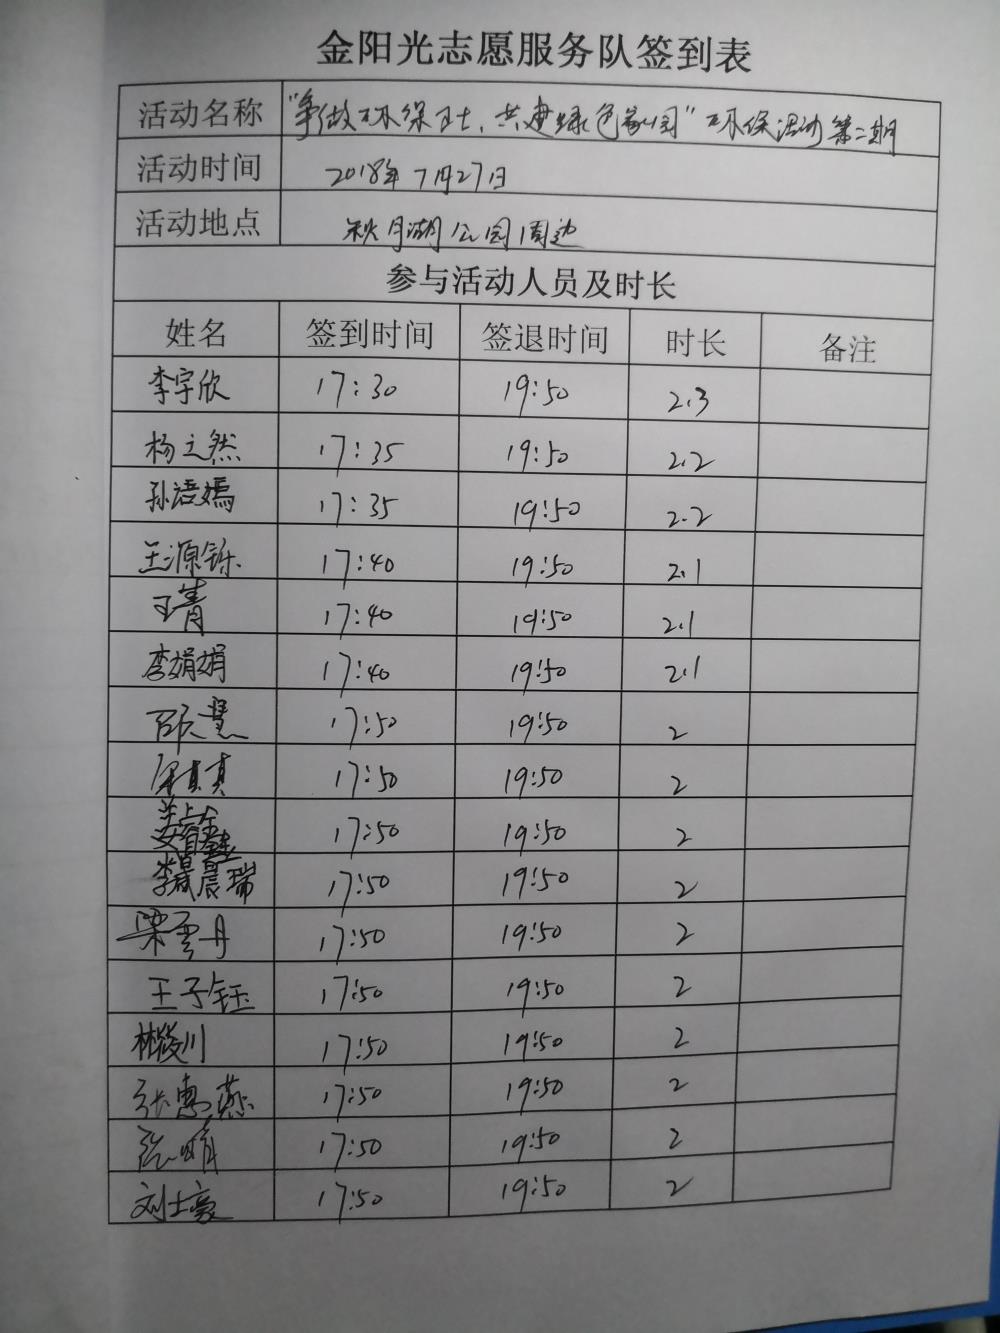 金阳光志愿服务队签到表
活动名称 "争做环保卫士、共建绿色家园"环保活动第二期
活动时间 2018年7月27日
活动地点 秋月湖公园周边
参与活动人员及时长
姓名 签到时间 签退时间 时长 备注
李宇欣 17:30 19:50 2.3
杨之然 17:35 19:50 2.2
孙语嫣 17:35 19:50 2.2
王源铄 17:40 19:50 2.1
王青 17:40 19:50 2.1
李娟娟 17:40 19:50 2.1
邵慧 17:50 19:50 2
17:50 19:50 2
17:50 19:50 2
李晨瑞 17:50 19:50 2
梁雲丹 17:50 19:50 2
王子钰 17:50 19:50 2
林筱川 17:50 19:50 2
张惠燕 17:50 19:50 2
张晴 17:50 19:50 2
刘士豪 17:50 19:50 2